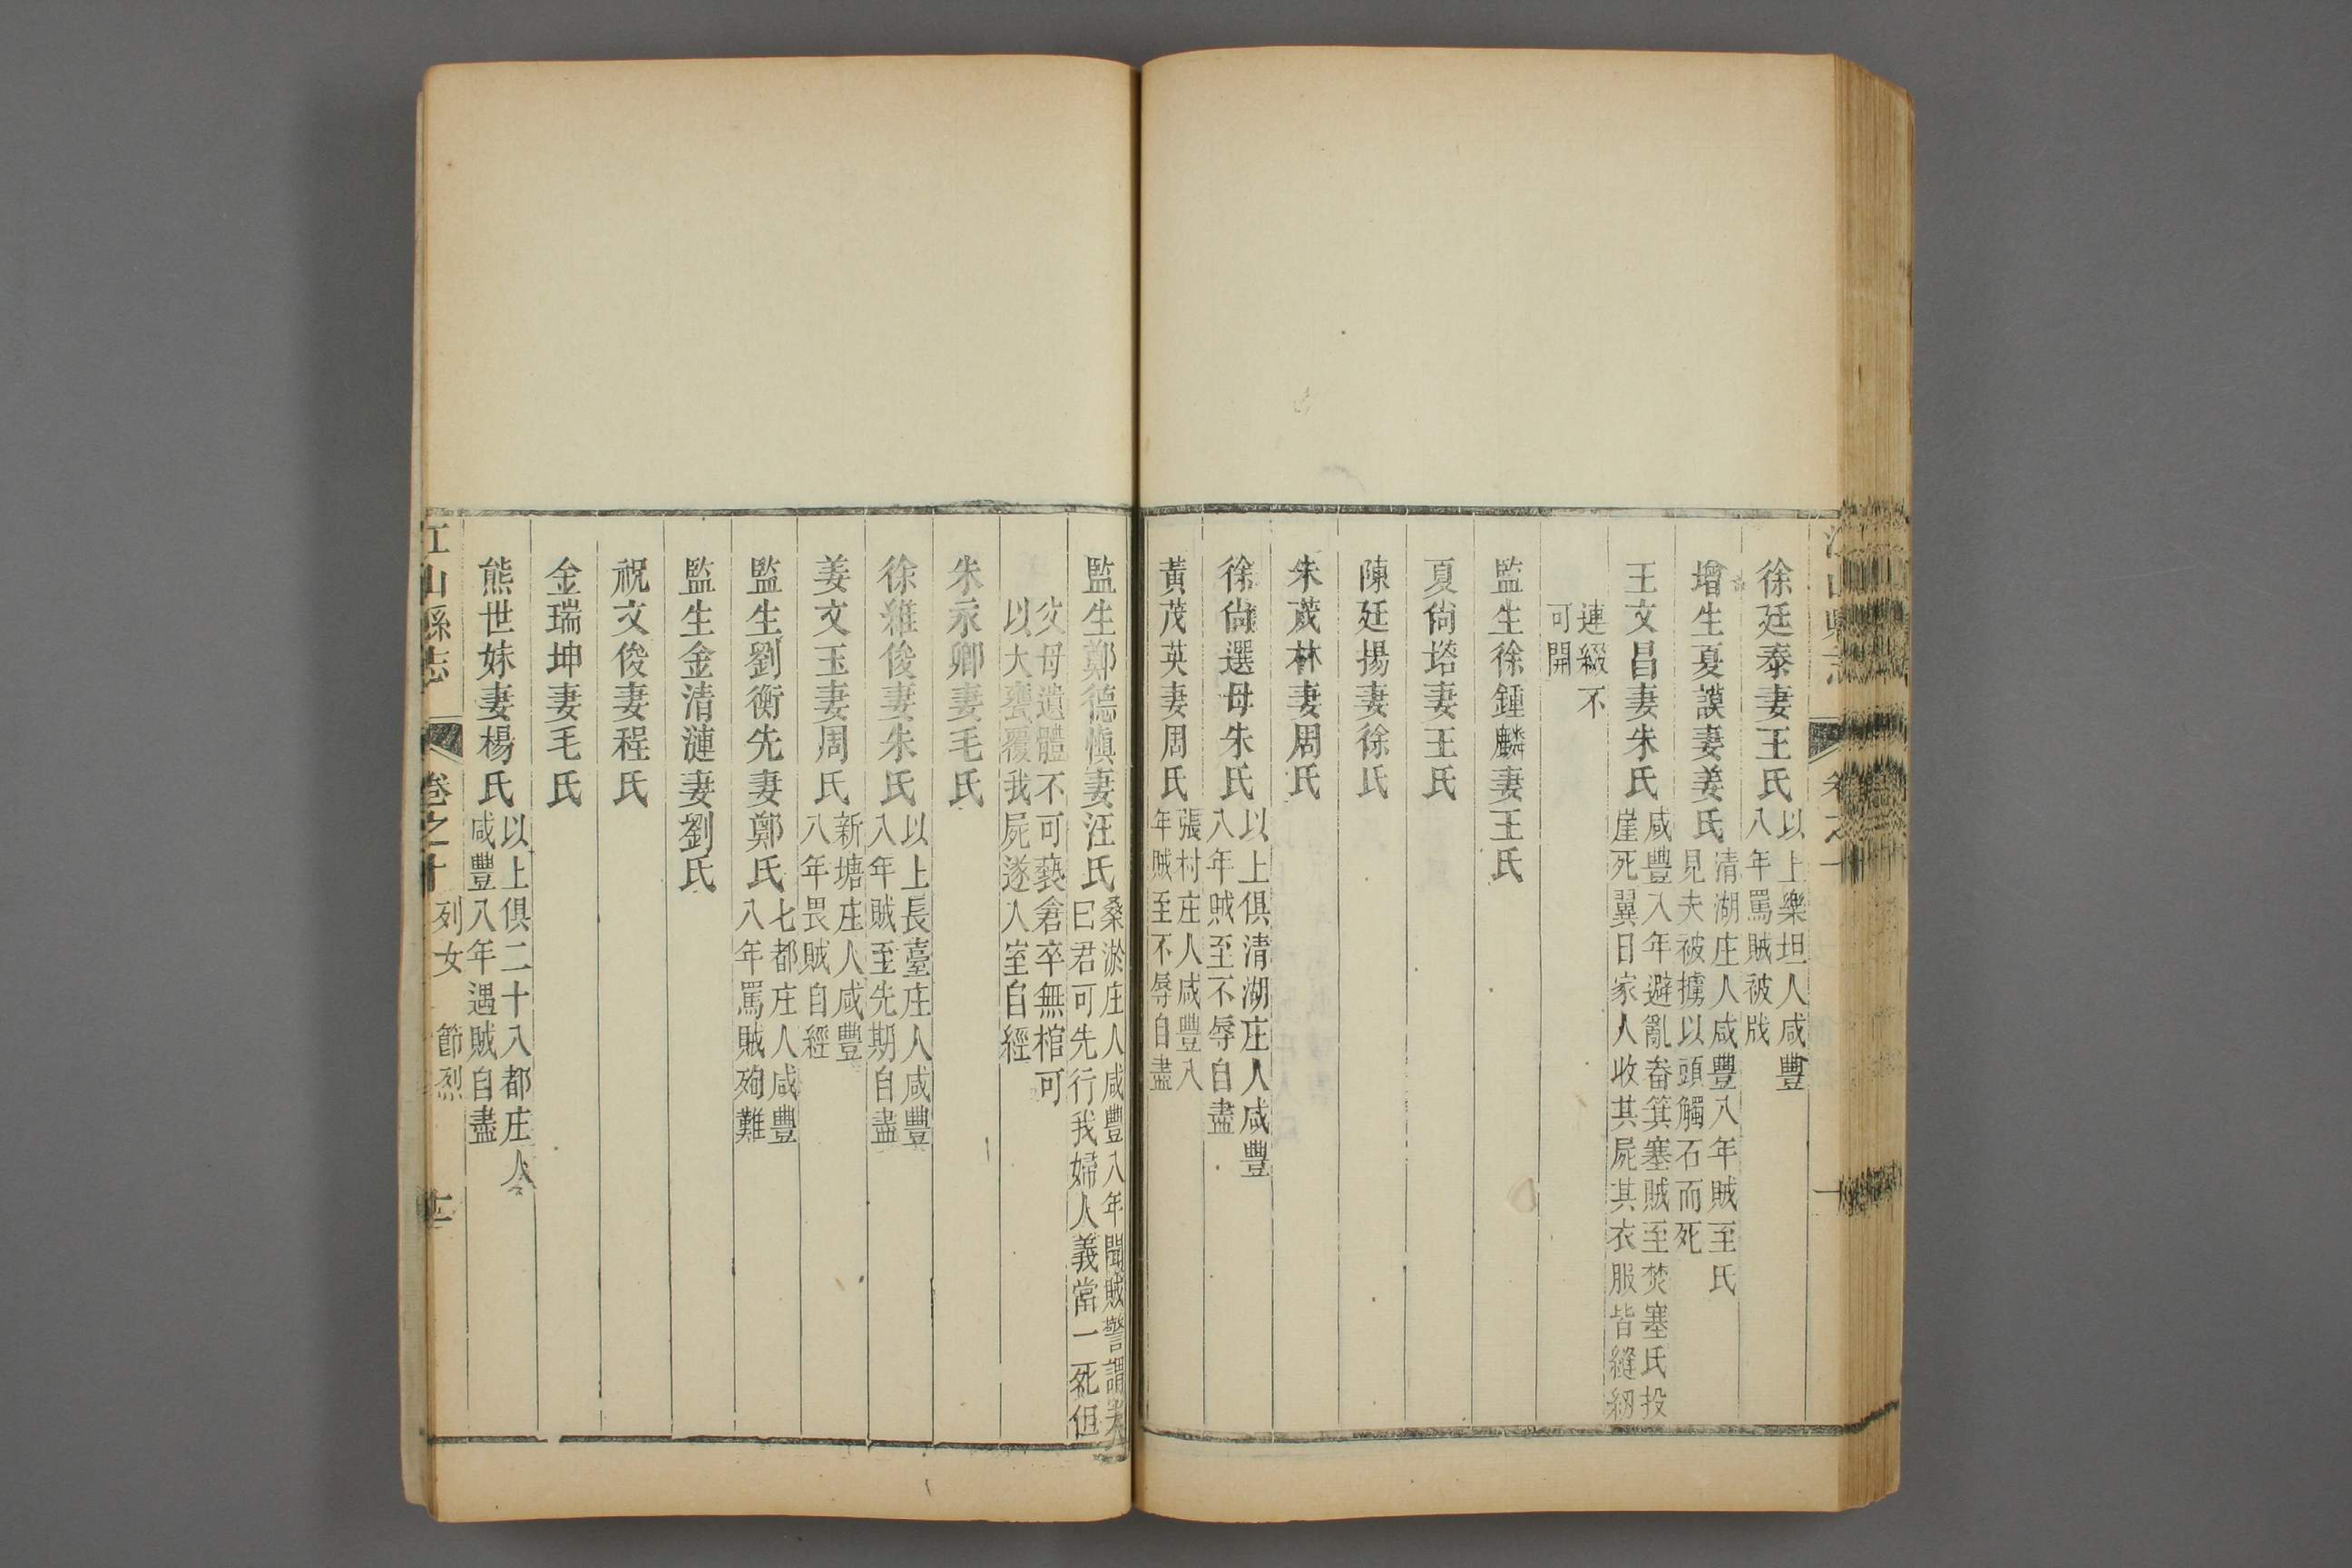 徐廷泰妻王氏以上樂坦人咸豐八年罵賊被戕
增生夏謨妻姜氏清湖庄人咸豐八年賊至氏見夫被擄以頭觸石而死
王文昌妻朱氏咸豐八年避亂畚箕塞賊至焚塞氏投崖死翼日家人收其屍其衣服皆縫紉
連綴不可開
監生徐鍾麟妻王氏
夏尙塔妻王氏
陳廷揚妻徐氏
朱荿林妻周氏
徐尙選母朱氏以上俱清湖庄人咸豐八年賊至不辱自盡
黃茂英妻周氏張村庄人咸豐八年賊至不辱自盡
監生鄭德愼妻汪氏桑淤庄人咸豐八年聞賊警謂夫曰君可先行我婦人義當一死但
父母遺體不可褻倉卒無棺可以大甕覆我屍遂入室自經
朱永卿妻毛氏
徐雒俊妻朱氏以上長臺庄人咸豐八年賊至先期自盡
姜文玉妻周氏新塘庄人咸豐八年畏賊自經
監生劉衡先妻鄭氏七都庄人咸豐八年罵賊殉難
監生金清漣妻劉氏
祝文俊妻程氏
金瑞坤妻毛氏
熊世妹妻楊氏以上俱二十八都庄人咸豐八年遇賊自盡
江山縣志 卷之十 列女 節烈 十一